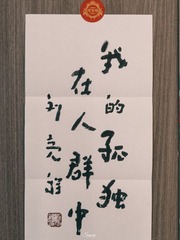 我的孤独
在人群中
刘亮雅